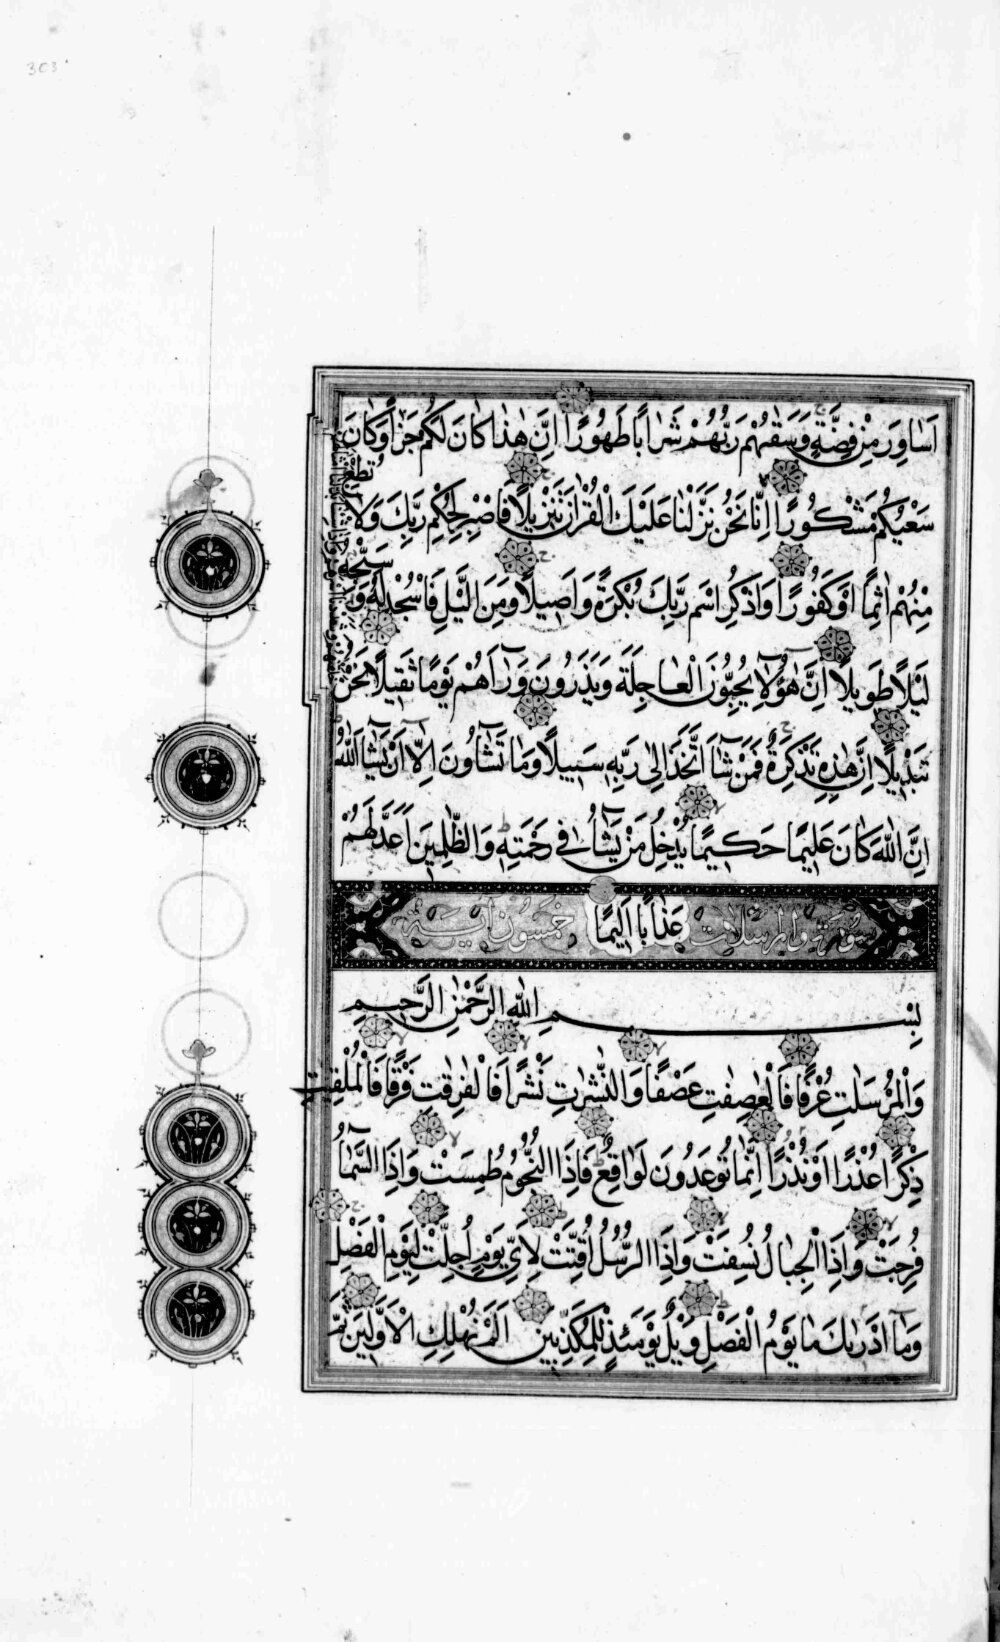 303
اَسَاوِرَ مِنْ فِضَّةٍ وَسَقٰيهُمْ رَبُّهُمْ شَرَابًا طَهُورًا اِنَّ هٰذَا كَانَ لَكُمْ جَزَاۤءً وَكَانَ
سَعْيُكُمْ مَشْكُورًا اِنَّا نَحْنُ نَزَّلْنَا عَلَيْكَ الْقُرْاٰنَ تَنْزِيلًا فَاصْبِرْ لِحُكْمِ رَبِّكَ وَلَا تُطِعْ
مِنْهُمْ اٰثِمًا اَوْ كَفُورًا وَاذْكُرِ اسْمَ رَبِّكَ بُكْرَةً وَاَصِيلًا وَمِنَ الَّيْلِ فَاسْجُدْ لَهُ وَسَبِّحْهُ
لَيْلًا طَوِيلًا اِنَّ هٰؤُلَاۤءِ يُحِبُّونَ الْعَاجِلَةَ وَيَذَرُونَ وَرَاۤءَهُمْ يَوْمًا ثَقِيلًا نَحْنُ
تَبْدِيلًا اِنَّ هٰذِهِ تَذْكِرَةٌ فَمَنْ شَاۤءَ اتَّخَذَ اِلٰى رَبِّهِ سَبِيلًا وَمَا تَشَاۤؤُنَ اِلَّاۤ اَنْ يَشَاۤءَ اللّٰهُ
اِنَّ اللّٰهَ كَانَ عَلِيمًا حَكِيمًا يُدْخِلُ مَنْ يَشَاۤءُ فِي رَحْمَتِهِ وَالظّٰلِمِينَ اَعَدَّ لَهُمْ
سورة والمرسلات عَذَابًا اَلِيمًا خمسون اية
بِسْمِ اللّٰهِ الرَّحْمٰنِ الرَّحِيمِ
وَالْمُرْسَلٰتِ عُرْفًا فَالْعٰصِفٰتِ عَصْفًا وَالنّٰشِرٰتِ نَشْرًا فَالْفٰرِقٰتِ فَرْقًا فَالْمُلْقِيٰتِ
ذِكْرًا عُذْرًا اَوْ نُذْرًا اِنَّمَا تُوعَدُونَ لَوَاقِعٌ فَاِذَا النُّجُومُ طُمِسَتْ وَاِذَا السَّمَاۤءُ
فُرِجَتْ وَاِذَا الْجِبَالُ نُسِفَتْ وَاِذَا الرُّسُلُ اُقِّتَتْ لِاَيِّ يَوْمٍ اُجِّلَتْ لِيَوْمِ الْفَصْلِ
وَمَاۤ اَدْرٰيكَ مَا يَوْمُ الْفَصْلِ وَيْلٌ يَوْمَئِذٍ لِلْمُكَذِّبِينَ اَلَمْ نُهْلِكِ الْاَوَّلِينَ ثُمَّ